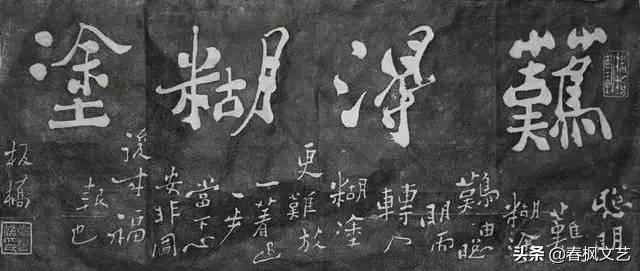 難得糊塗
聰明
難
糊塗
難由聰
明而
轉入
糊塗
更難放
一著退
一步
當下心
安非圖
後來福
報也
板橋
头条 @春枫文艺